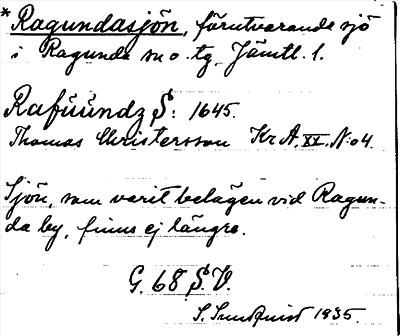 *Ragundasjön, förutvarande sjö
i Ragunda sn o. tg, Jämtl. l.
Rafúúndz S: 1645.
Thomas Christersson Kr A. XX. N:o 4.
Sjön, som varit belägen vid Ragun-
da by, finns ej längre.
G. 68 S.V.
S. Sundquist 1935.